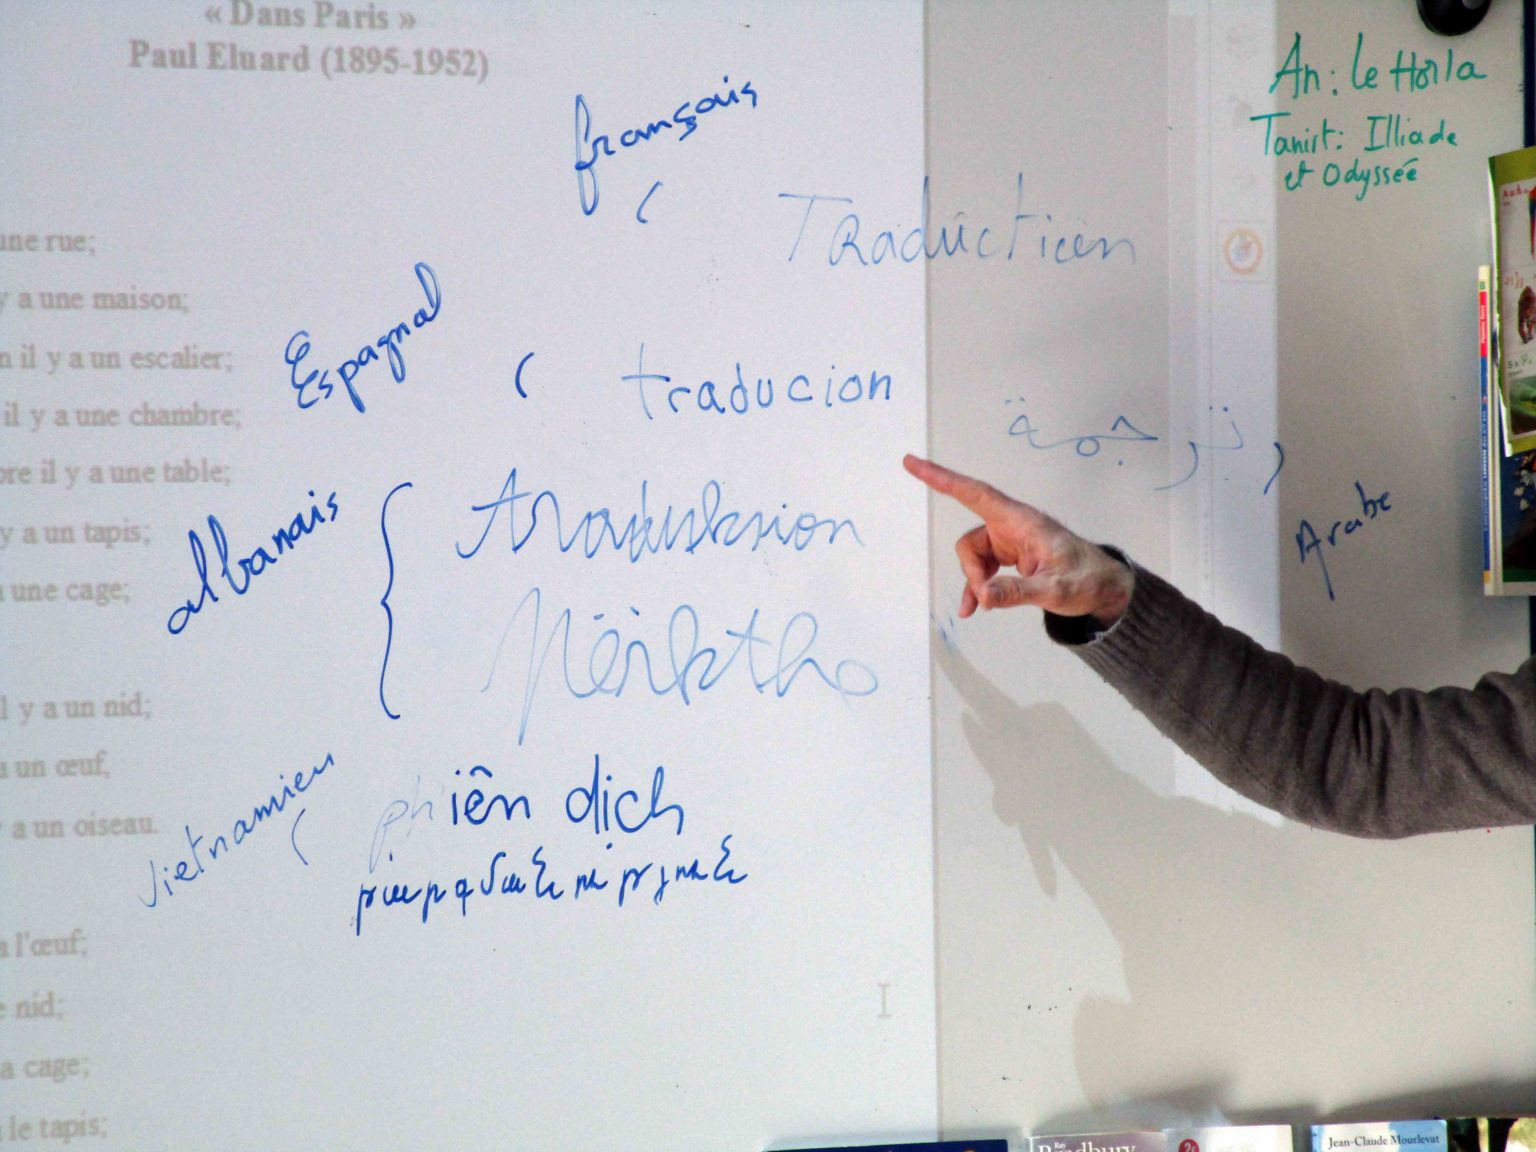 « Dans Paris »
Paul Eluard (1895-1952)
An : Le Horla
Tanirt : Illiade
et Odyssée
français
Traductieen
une rue;
y a une maison;
il y a un escalier;
Espagnol
traducion
il y a une chambre;
ترجمة
Arabe
il y a une table;
y a un tapis;
albanais
traduksion
une cage;
y a un nid;
un œuf,
Vietnamien
phiên dich
a un oiseau.
l'œuf;
nid;
a cage;
le tapis;
Ray
Bradbury
Jean-Claude Mourlevat